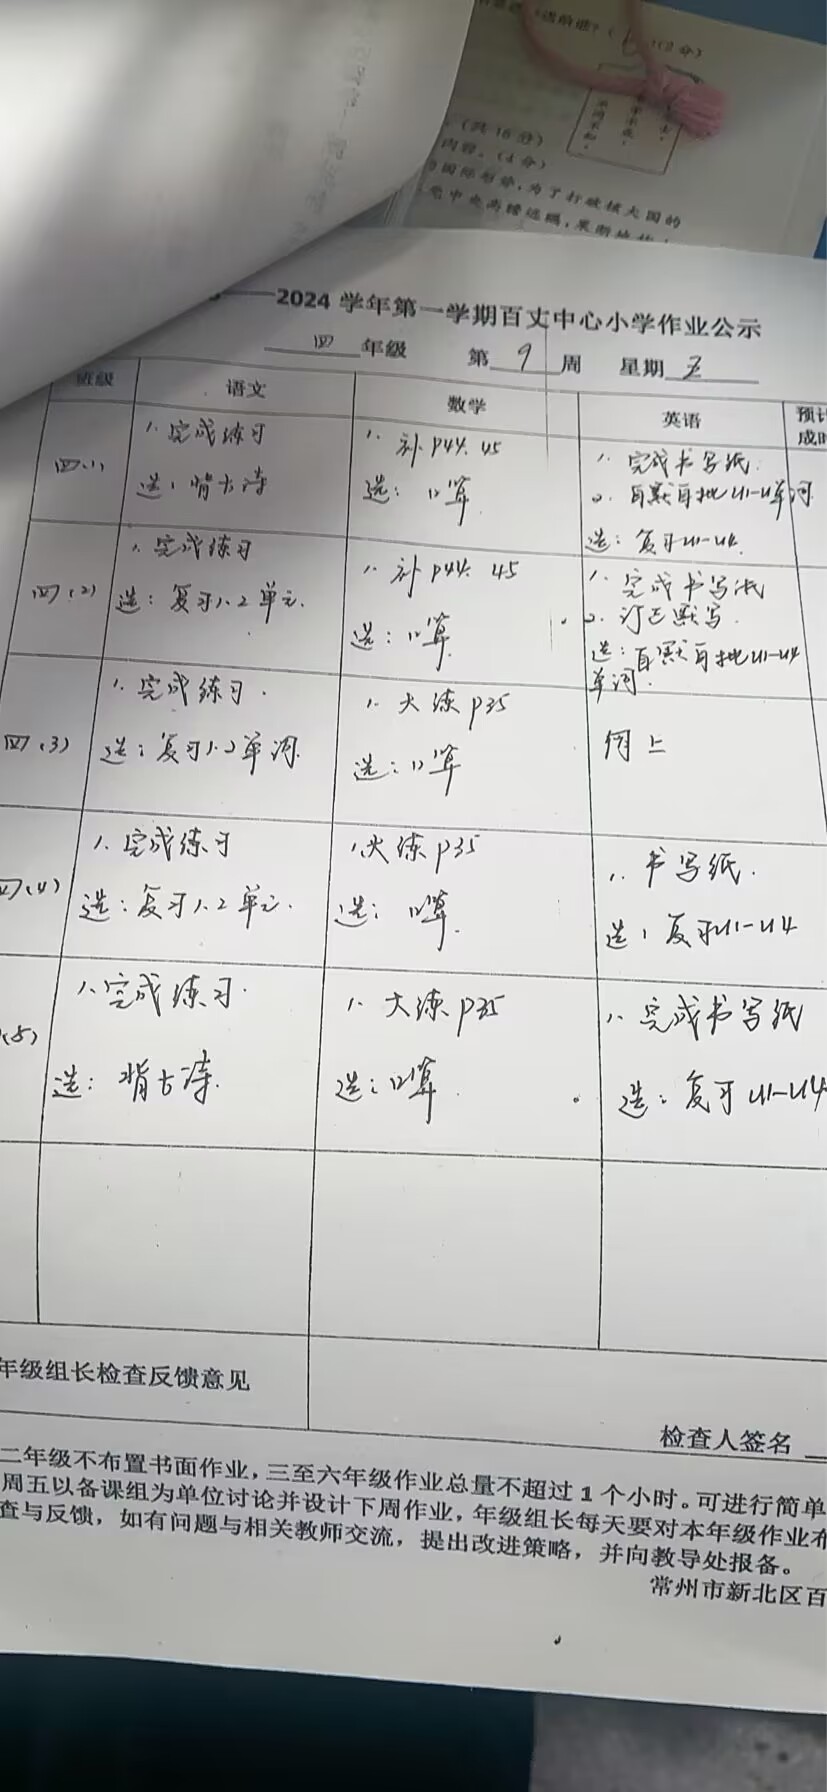 (2分)
(共16分)
内容。(4分)
国际形势，为了打破核大国的
党中央高瞻远瞩，果断地作
——2024 学年第一学期百丈中心小学作业公示
四 年级 第 9 周 星期 五
班级 语文 数学 英语 预计
成时
四(1)
1. 完成练习
选：背古诗
1. 补 P44. 45
选：口算
1. 完成书写纸.
2. 自默自批 U1-U4单词
选：复习U1-U4.
四(2)
1. 完成练习
选：复习1.2单元.
1. 补 P44. 45
选：口算
1. 完成书写纸
2. 订正默写.
选：自默自批U1-U4
单词.
四(3)
1. 完成练习.
选：复习1.2单词.
1. 大练 P35
选：口算
同上
四(4)
1. 完成练习
选：复习1.2单元.
1. 大练 P35
选：口算.
1. 书写纸.
选：复习U1-U4
(5)
1. 完成练习.
选：背古诗.
1. 大练 P35
选：口算.
1. 完成书写纸
选：复习 U1-U4
年级组长检查反馈意见
检查人签名
二年级不布置书面作业，三至六年级作业总量不超过 1 个小时。可进行简单
周五以备课组为单位讨论并设计下周作业，年级组长每天要对本年级作业布
查与反馈，如有问题与相关教师交流，提出改进策略，并向教导处报备。
常州市新北区百